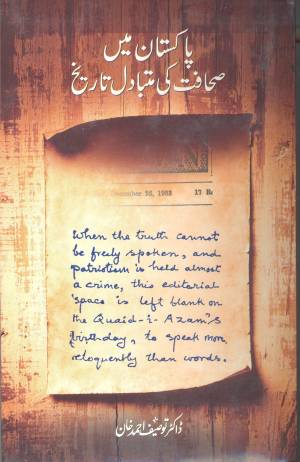 پاکستان میں
صحافت کی متبادل تاریخ
December 25, 1983
17 R
When the truth cannot
be freely spoken, and
patriotism is held almost
a crime, this editorial
space is left blank on
the Quaid-i-Azam's
Birthday, to speak more
eloquently than words.
ڈاکٹر توصیف احمد خان